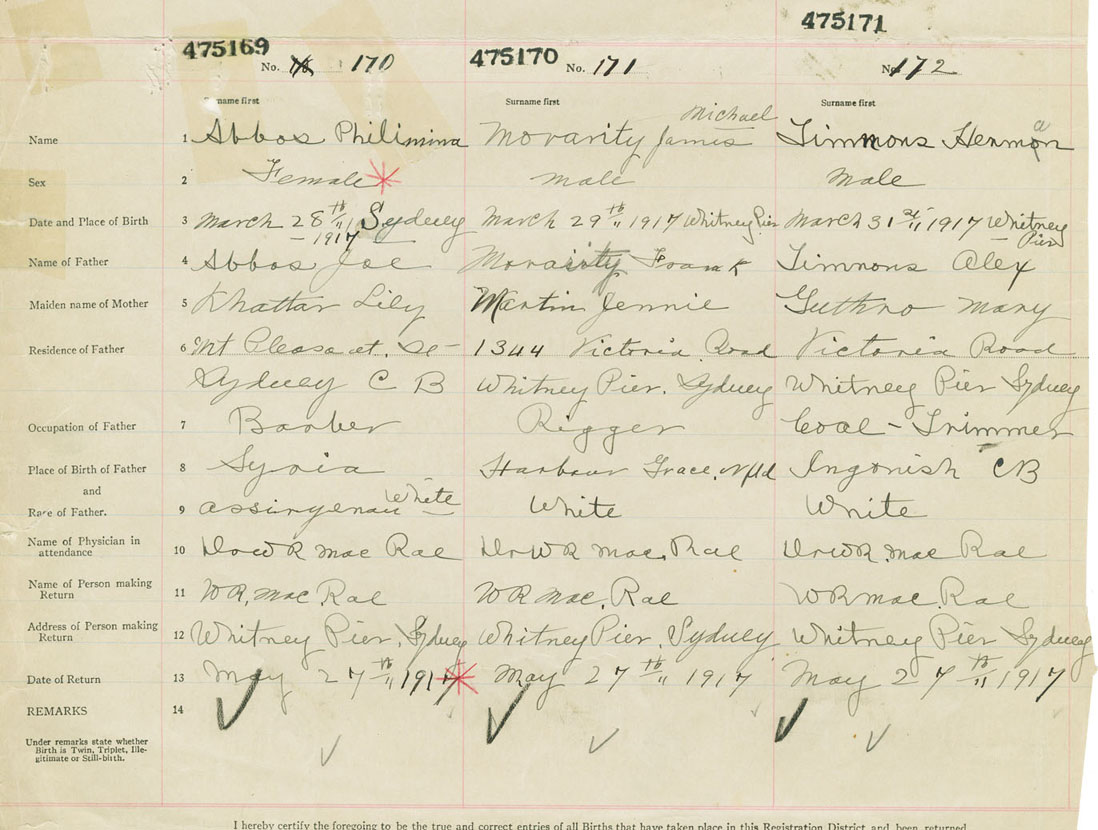 475169 475170 475171
No. 170 No. 171 No. 172
Surname first Surname first Surname first
Michael
Name 1 Abbos Philimina Morarity James Timmons Hermon
a
Sex 2 Female Male Male
Date and Place of Birth 3 March 28th 1917 Sydney March 29th 1917 Whitney Pier March 31st 1917 Whitney Pier
Name of Father 4 Abbos Joe Morarity Frank Timmons Alex
Maiden name of Mother 5 Khattar Lily Martin Jennie Guthro Mary
Residence of Father 6 Mt Pleasant. St- 1344 Victoria Road Victoria Road
Sydney C B Whitney Pier. Sydney Whitney Pier Sydney
Occupation of Father 7 Barber Rigger Coal-Trimmer
Place of Birth of Father 8 Syria Harbour Grace, Nfld Ingonish CB
and
Race of Father. 9 assiryenan White White White
Name of Physician in
attendance 10 Dr W R Mac Rae Dr W R Mac. Rae Dr W R. Mac Rae
Name of Person making
Return 11 W R. Mac. Rae W R Mac. Rae W R Mac. Rae
Address of Person making
Return 12 Whitney Pier. Sydney Whitney Pier, Sydney Whitney Pier Sydney
Date of Return 13 May 27th 1917 May 27th 1917 May 27th 1917
REMARKS 14
Under remarks state whether
Birth is Twin, Triplet, Ille-
gitimate or Still-birth.
I hereby certify the foregoing to be the true and correct entries of all Births that have taken place in this Registration District and been returned